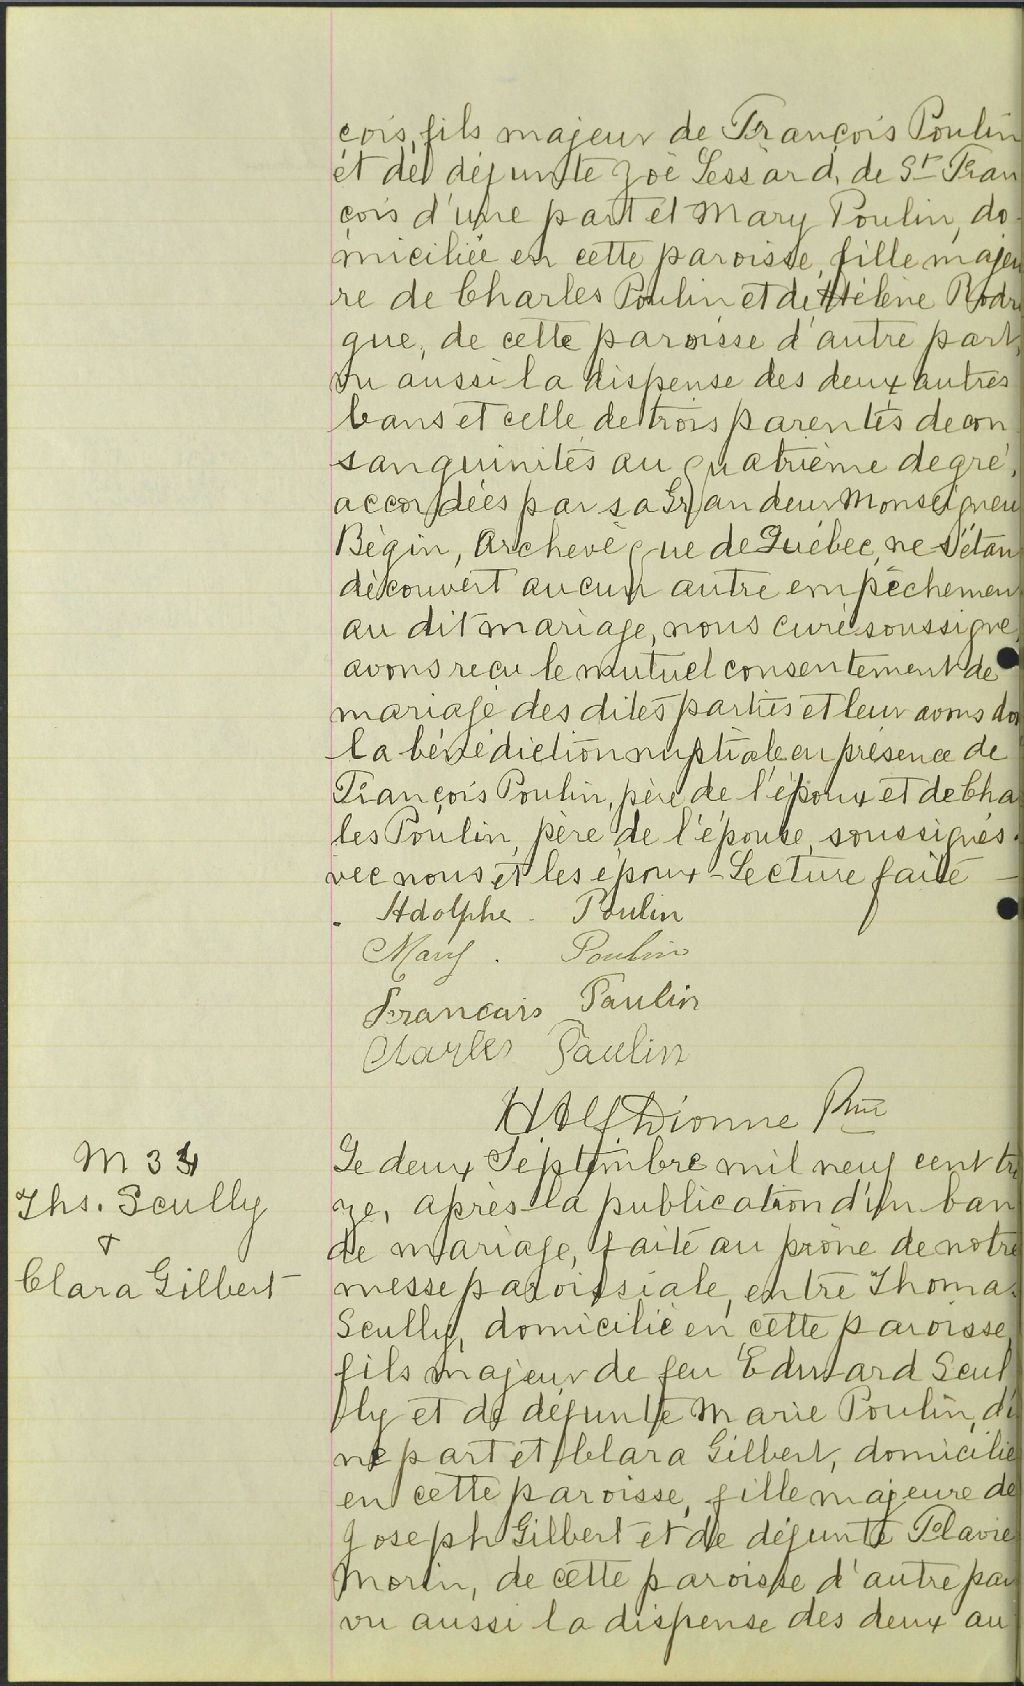 çois, fils majeur de François Poulin
et de défunte Zoé Lessard, de St Fran
çois d'une part et Mary Poulin, do-
miciliée en cette paroisse, fille majeu
re de Charles Poulin et de Hélène Rodri
gue, de cette paroisse d'autre part,
vu aussi la dispense des deux autres
bans et celle de trois parentés de con
sanguinités au quatrième degré,
accordées par sa Grandeur Monseigneu
Bégin, Archevêque de Québec, ne s'étan
découvert aucun autre empêchemen
au dit mariage, nous curé soussigné,
avons reçu le mutuel consentement de
mariage des dites parties et leur avons do
la bénédiction nuptiale en présence de
François Poulin, père de l'époux et de Cha
les Poulin, père de l'épouse, soussignés
vec nous et les époux - Lecture faite -
Adolphe Poulin
Mary Poulin
Francais Paulin
Charles Paulin
H Alf Dionne Ptre
M 34
Ths. Scully
&
Clara Gilbert
Le deux Septembre mil neuf cent tr
ze, après la publication d'un ban
de mariage, faite au prône de notre
messe paroissiale, entre Thomas
Scully, domicilié en cette paroisse,
fils majeur de feu Edward Scul
lly et de défunte Marie Poulin, d'u
ne part et Clara Gilbert, domicilié
en cette paroisse, fille majeure de
Joseph Gilbert et de défunte Flavie
Morin, de cette paroisse d'autre par
vu aussi la dispense des deux au